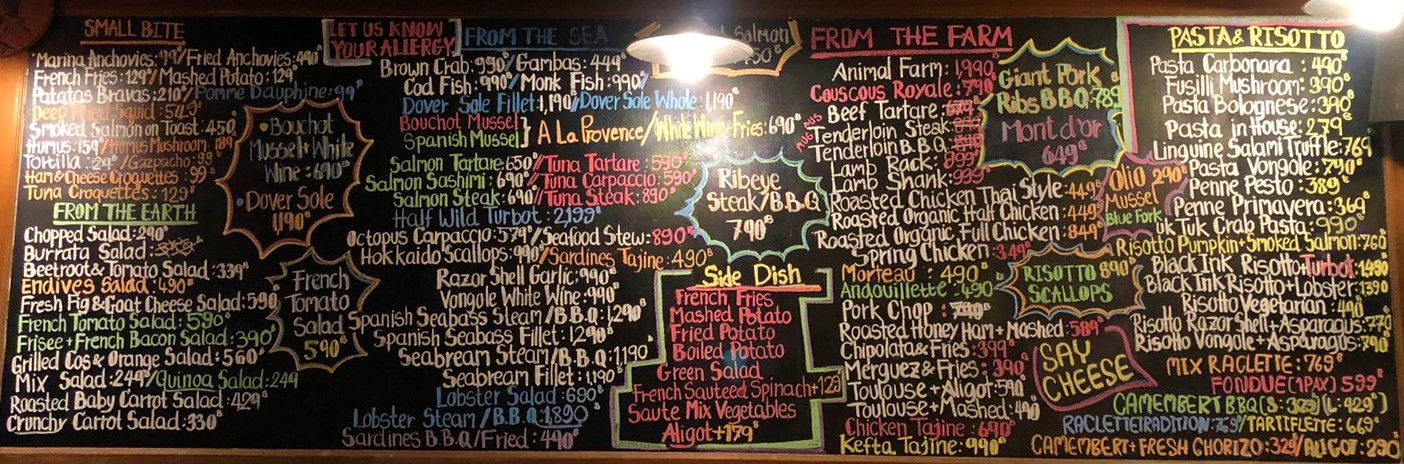 SMALL BITE
Marina Anchovies: 99/Fried Anchovies: 490
French Fries: 129/Mashed Potato: 129
Patatas Bravas: 210/Pomme Dauphine: 99
Deep Fried Squid: 545
Smoked Salmon on Toast: 450
Humus: 159/Humus Mushroom: 189
Tortilla: 29/Gazpacho: 99
Ham & Cheese Croquettes: 99
Tuna Croquettes: 129
FROM THE EARTH
Chopped Salad: 290
Burrata Salad:
Beetroot & Tomato Salad: 339
Endives Salad: 490
Fresh Fig & Goat Cheese Salad: 590
French Tomato Salad: 590
Frisee + French Bacon Salad: 390
Grilled Cos & Orange Salad: 560
Mix Salad: 249/Quinoa Salad: 249
Roasted Baby Carrot Salad: 429
Crunchy Carrot Salad: 330
Bouchot
Mussel + White
Wine: 690
Dover Sole
1,190
French
Tomato
Salad
590
LET US KNOW
YOUR ALLERGY
FROM THE SEA
Brown Crab: 990/Gambas: 449
Cod Fish: 990/Monk Fish: 990
Dover Sale Fillet: 1,190/Dover Sole Whole: 1,190
Bouchot Mussel
Spanish Mussel
A La Provence/White Wine + Fries: 690
Salmon Tartare: 650/Tuna Tartare: 590
Salmon Sashimi: 690/Tuna Carpaccio: 590
Salmon Steak: 690/Tuna Steak: 890
Half Wild Turbot: 2,199
Octopus Carpaccio: 579/Seafood Stew: 890
Hokkaido Scallops: 990/Sardines Tajine: 490
Razor Shell Garlic: 990
Vongole White Wine: 990
Spanish Seabass Steam/B.B.Q: 1,290
Spanish Seabass Fillet: 1,290
Seabream Steam/B.B.Q: 1,190
Seabream Fillet: 1,190
Lobster Salad: 690
Lobster Steam/B.B.Q: 1,890
Sardines B.B.Q/Fried: 490
Salmon
Ribeye
Steak/B.B.Q
790
Side Dish
French Fries
Mashed Potato
Fried Potato
Boiled Potato
Green Salad
French Sauteed Spinach +129
Saute Mix Vegetables
Aligot +179
FROM THE FARM
Animal Farm: 1,990
Couscous Royale: 790
Beef Tartare:
AUS Tenderloin Steak:
AUS Tenderloin B.B.Q:
Lamb Rack: 999
Lamb Shank: 999
Roasted Chicken Thai Style: 449
Roasted Organic Half Chicken: 449
Roasted Organic Full Chicken: 849
Spring Chicken: 349
Morteau: 490
Andouillette: 490
Pork Chop:
Roasted Honey Ham + Mashed: 589
Chipolata & Fries: 399
Merguez & Fries: 390
Toulouse + Aligot: 590
Toulouse + Mashed: 490
Chicken Tajine: 690
Kefta Tajine: 990
Giant Pork
Ribs BBQ: 789
Mont d'or
649
Olio 290
Mussel
Blue Fork
RISOTTO 890
SCALLOPS
SAY
CHEESE
PASTA & RISOTTO
Pasta Carbonara: 490
Fusilli Mushroom: 390
Pasta Bolognese: 390
Pasta in House: 279
Linguine Salami Truffle: 769
Pasta Vongole: 790
Penne Pesto: 389
Penne Primavera: 369
uk Tuk Crab Pasta: 990
Risotto Pumpkin + Smoked Salmon: 760
Black Ink Risotto + Turbot: 1490
Black Ink Risotto + Lobster: 1390
Risotto Vegetarian: 490
Risotto Razor Shell + Asparagus: 770
Risotto Vongole + Asparagus: 790
MIX RACLETTE: 769
FONDUE (1PAX) 599
CAMEMBERT BBQ (S: 329) (L: 429)
RACLETTE TRADITION: 769/TARTIFLETTE: 669
CAMEMBERT + FRESH CHORIZO: 329/ALIGOT: 290